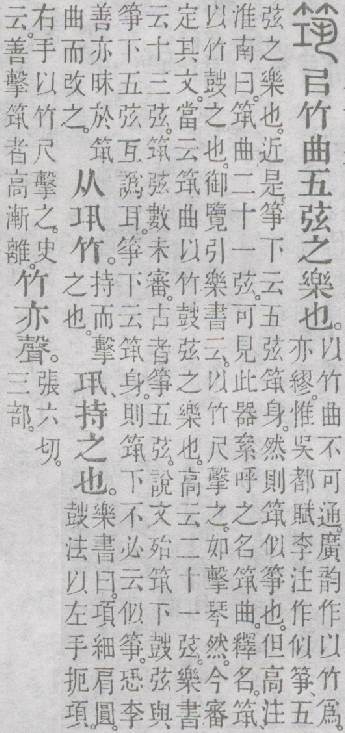 筑 㠯竹曲五弦之樂也。以竹曲不可通。廣韵作以竹爲。
亦繆。惟吳都賦李注作似箏、五
弦之樂也。近是。箏下云五弦筑身。然則筑似箏也。但高注
淮南曰。筑曲二十一弦。可見此器絫呼之名筑曲。釋名。筑、
以竹鼓之也。御覽引樂書云。以竹尺擊之。如擊琴然。今審
定其文。當云筑曲以竹鼓弦之樂也。高云二十一弦。樂書
云十三弦。筑弦數未審。古者箏五弦。說文殆筑下鼓弦與
箏下五弦互譌耳。箏下云筑身。則筑下不必云似箏。恐李
善亦昧於筑
曲而改之。
从巩竹。
持而擊
之也。
巩、持之也。
樂書曰。項細肩圓。
鼓法以左手扼項。
右手以竹尺擊之。史
云善擊筑者高漸離。
竹亦聲。
張六切。
三部。